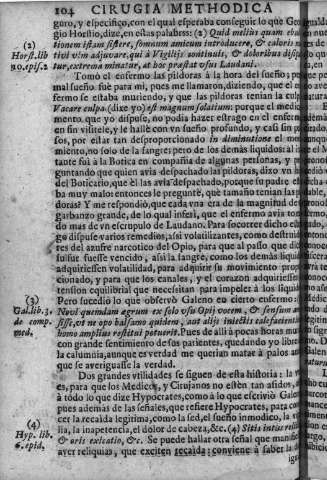 104 CIRUGIA METHODICA
guro, y especifico, con el qual esperaba conseguir lo que Geor-
gio Horstio, dize, en estas palabras: (2) Quid melius quam ebu
(2)
Horst. lib
no. epis. 2
tionem istam sistere, somnum amicum introducere, & caloris na
tivi vim adjuvare, qui à Vigilijs continuis, & doloribus disipa
tur, extrema minatur, at hoc præstat usu Laudani.
Tomò el enfermo las pildoras à la hora del sueño; pe
mal sueño fue para mi, pues me llamaron, diziendo, que el en
fermo se estaba muriendo, y que las pildoras tenian la culpa
Vacare culpa (dixe yo) est magnum solatium: porque el medica
mento, que yo dispuse, no podia hazer estrago en el enfermo
en fin visitele, y le hallè con un sueño profundo, y casi sin pul
sos, por estar tan desproporcionado in diminutione el mo
miento, no solo de la sangre; pero de los demàs liquidos: al in
tante fui à la Botica en compañia de algunas personas, y pre
guntando que quien avia despachado las pildoras, dixo un hi
del Boticario, que èl las avia despachado, porque su padre esta
ba muy malo: entonces le preguntè, que tamaño tenian las pil
doras? Y me respondiò, que cada una era de la magnitud de
garbanzo grande, de lo qual inferi, que el enfermo avia toma
do mas de un escrupulo de Laudano. Para socorrer dicho estra
go dispuse varios remedios, asi volatilizantes, como destruido
res del azufre narcotico del Opio, para que al passo que dicho
sulfur fuesse vencido, asi la sangre, como los demàs liquidos
adquiriessen volatilidad, para adquirir su movimiento propor
cionado, y para que los canales, y el corazon adquiriessen
tension equilibrial que necessitan para impeler à los liquidos
(3)
Gal. lib. 3.
de comp.
med.
Pero sucediò lo que observò Galeno en cierto enfermo:
Novi quemdam ægrum ex solo usu Opij votem, & sensum am
sisse, ut ne ope balsamo quidem, aut alijs intectis calefacientibus
homo amplius restitui potuerit. Pues de allì à pocas horas mu
con grande sentimiento de sus parientes, quedando yo libre
la calumnia, aunque es verdad me querian matar à palos an
que se averiguasse la verdad.
Dos grandes utilidades se siguen de esta historia: la
es, para que los Medicos, y Cirujanos no estèn tan asidos,
à todo lo que dize Hypocrates, como à lo que escriviò Galeno
pues ademas de las señales, que refiere Hypocrates, para cono
cer la recaida legitima, como la sed, el sueño inmodico, la
(4)
Hyp. lib
6. epid.
lia, la inapetencia, el dolor de cabeza, &c. (4) Sitis intus relicta
& oris exicatio, &c. Se puede hallar otra señal que manifi
aver reliquias, que exciten recaida; conviene à saber